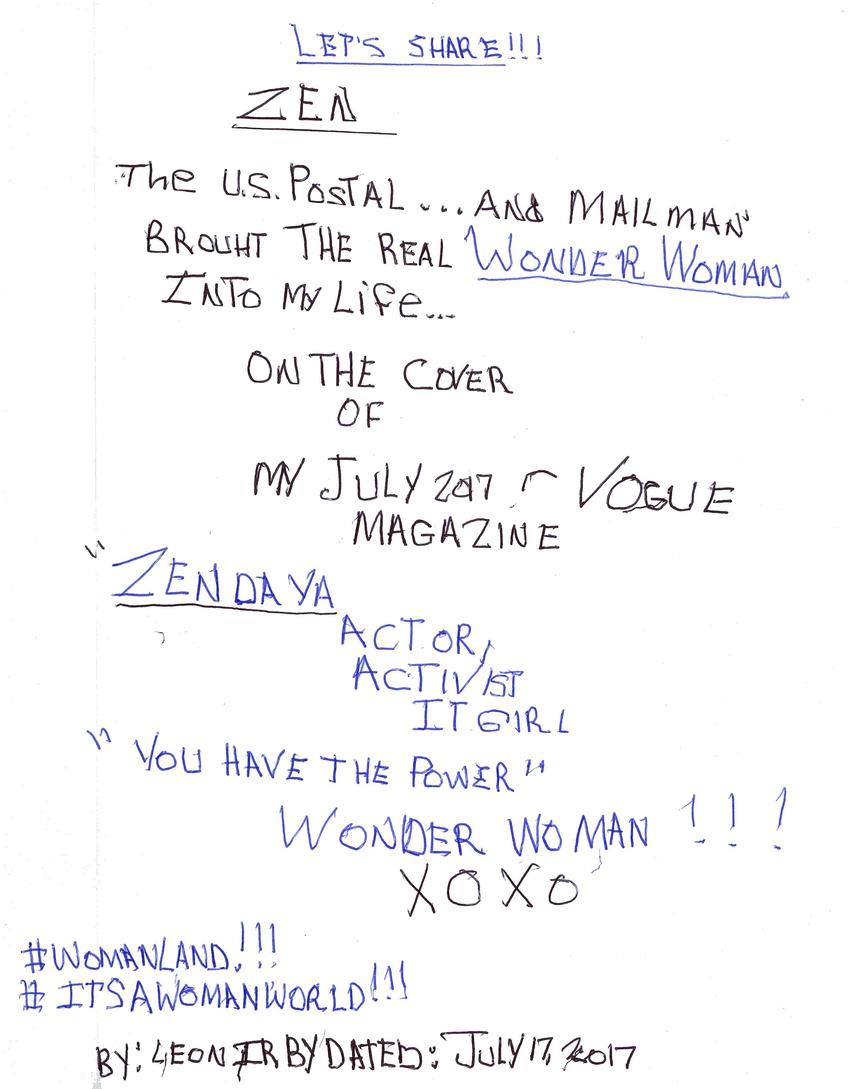 LET'S SHARE!!!
ZEN
The U.S. POSTAL... AND MAILMAN
BROUHT THE REAL WONDER WOMAN
INTO MY LiFe...
ON THE COVER
OF
MY JULY 2017 VOGUE
MAGAZINE
"ZENDAYA
ACTOR,
ACTIVIST
IT GIRL
"YOU HAVE THE POWER"
WONDER WOMAN !!!
XOXO
#WOMANLAND!!!
#ITSAWOMANWORLD!!!
BY: LEON IRBY DATED: JULY 17, 2017